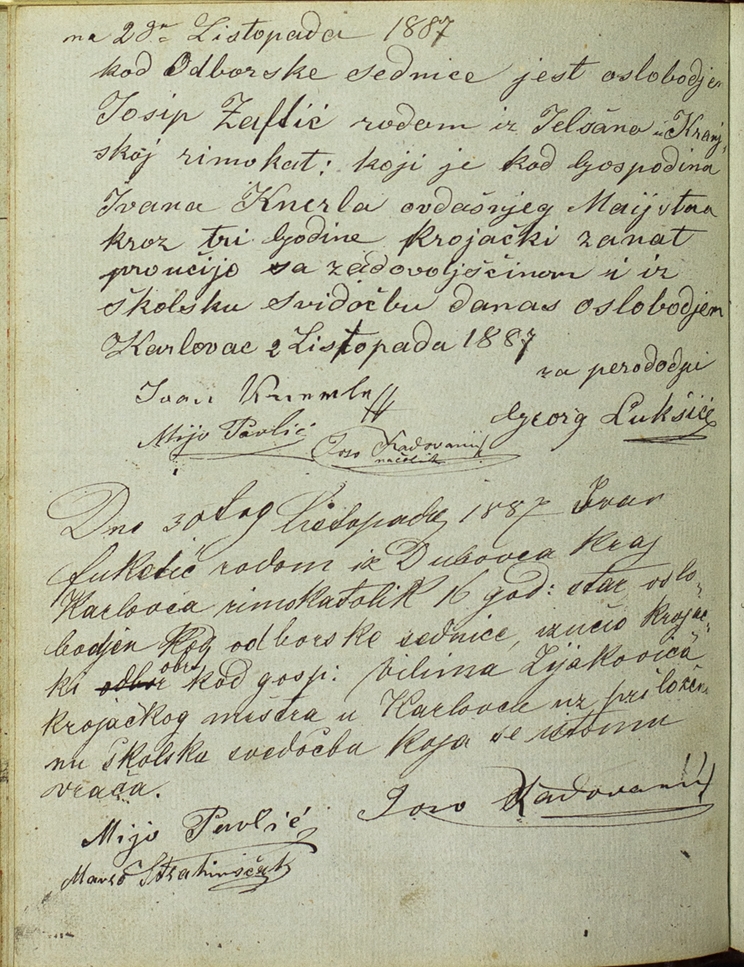 na 2ga Listopada 1887
kod Odborske sednice jest oslobodjen
Josip Zaftić rodom iz Jelšano u Kranj-
skoj rimokat: koji je kod Gospodina
Ivana Knerla ovdašnjeg Maijstra
kroz tri Godine krojački zanat
proučijo sa zadovoljšćinom i iz
školsku svidočbu danas oslobodjen
Karlovac 2 Listopada 1887
za
Ivan
Georg Lukšić
Mijo Pavlić
Joso Radovanić
načelnik
Dne 30tog listopada 1887 Ivan
rodom iz Dubovca kraj
Karlovca rimokatolik 16 god: star oslo-
bodjen kod odborske sednice, izučio krojač-
ki obrt kod gosp: Vilima Lijakovića
krojačkog meštra u Karlovcu uz prilože-
nu školska svedočba koja se istomu
vraća.
Joso Radovanić
Mijo Pavlić
Marko